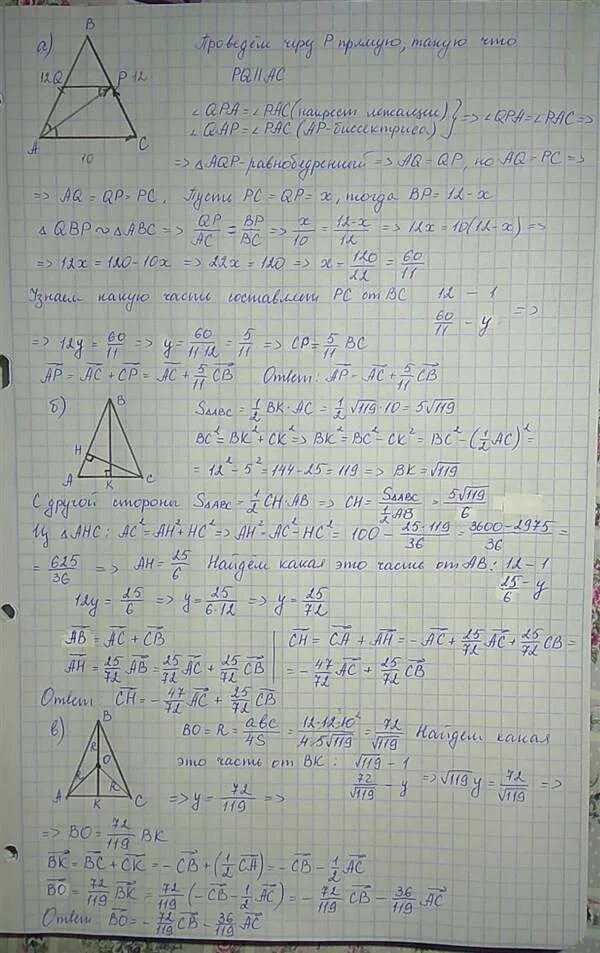 а)
B
12 Q P 12
A C
10
Проведём через P прямую, такую что
PQ||AC
∠QPA = ∠PAC (накрест лежащие)
∠QAP = ∠PAC (AP-биссектриса) } => ∠QPA = ∠PAC =>
=> △AQP - равнобедренный => AQ = QP, но AQ = PC =>
=> AQ = QP = PC. Пусть PC = QP = x, тогда BP = 12 - x
△QBP ~ △ABC => QP/AC = BP/BC => x/10 = (12-x)/12 => 12x = 10(12-x) =>
=> 12x = 120 - 10x => 22x = 120 => x = 120/22 = 60/11
Узнаем какую часть составляет PC от BC 12 - 1
60/11 - y =>
=> 12y = 60/11 => y = 60/(11·12) = 5/11 => CP = 5/11 BC
AP = AC + CP = AC + 5/11 CB Ответ: AP = AC + 5/11 CB
б)
B
H
A K C
S△ABC = 1/2 BK · AC = 1/2 √119 · 10 = 5√119
BC² = BK² + CK² => BK² = BC² - CK² = BC² - (1/2 AC)² =
= 12² - 5² = 144 - 25 = 119 => BK = √119
С другой стороны S△ABC = 1/2 CH · AB => CH = S△ABC/(1/2 AB) = 5√119/6
Из △AHC: AC² = AH² + HC² => AH² = AC² - HC² = 100 - 25·119/36 = (3600 - 2975)/36 =
= 625/36 => AH = 25/6 Найдём какая это часть от AB: 12 - 1
25/6 - y
12y = 25/6 => y = 25/(6·12) => y = 25/72
AB = AC + CB
AH = 25/72 AB = 25/72 AC + 25/72 CB
CH = CA + AH = -AC + 25/72 AC + 25/72 CB =
= -47/72 AC + 25/72 CB
Ответ: CH = -47/72 AC + 25/72 CB
в)
B
R
O
R R
A K C
BO = R = abc/4S = 12·12·10/(4·5√119) = 72/√119 Найдём какая
это часть от BK: √119 - 1
72/√119 - y => √119 y = 72/√119 =>
=> y = 72/119 =>
=> BO = 72/119 BK
BK = BC + CK = -CB + (1/2 CA) = -CB - 1/2 AC
BO = 72/119 BK = 72/119 (-CB - 1/2 AC) = -72/119 CB - 36/119 AC
Ответ: BO = -72/119 CB - 36/119 AC